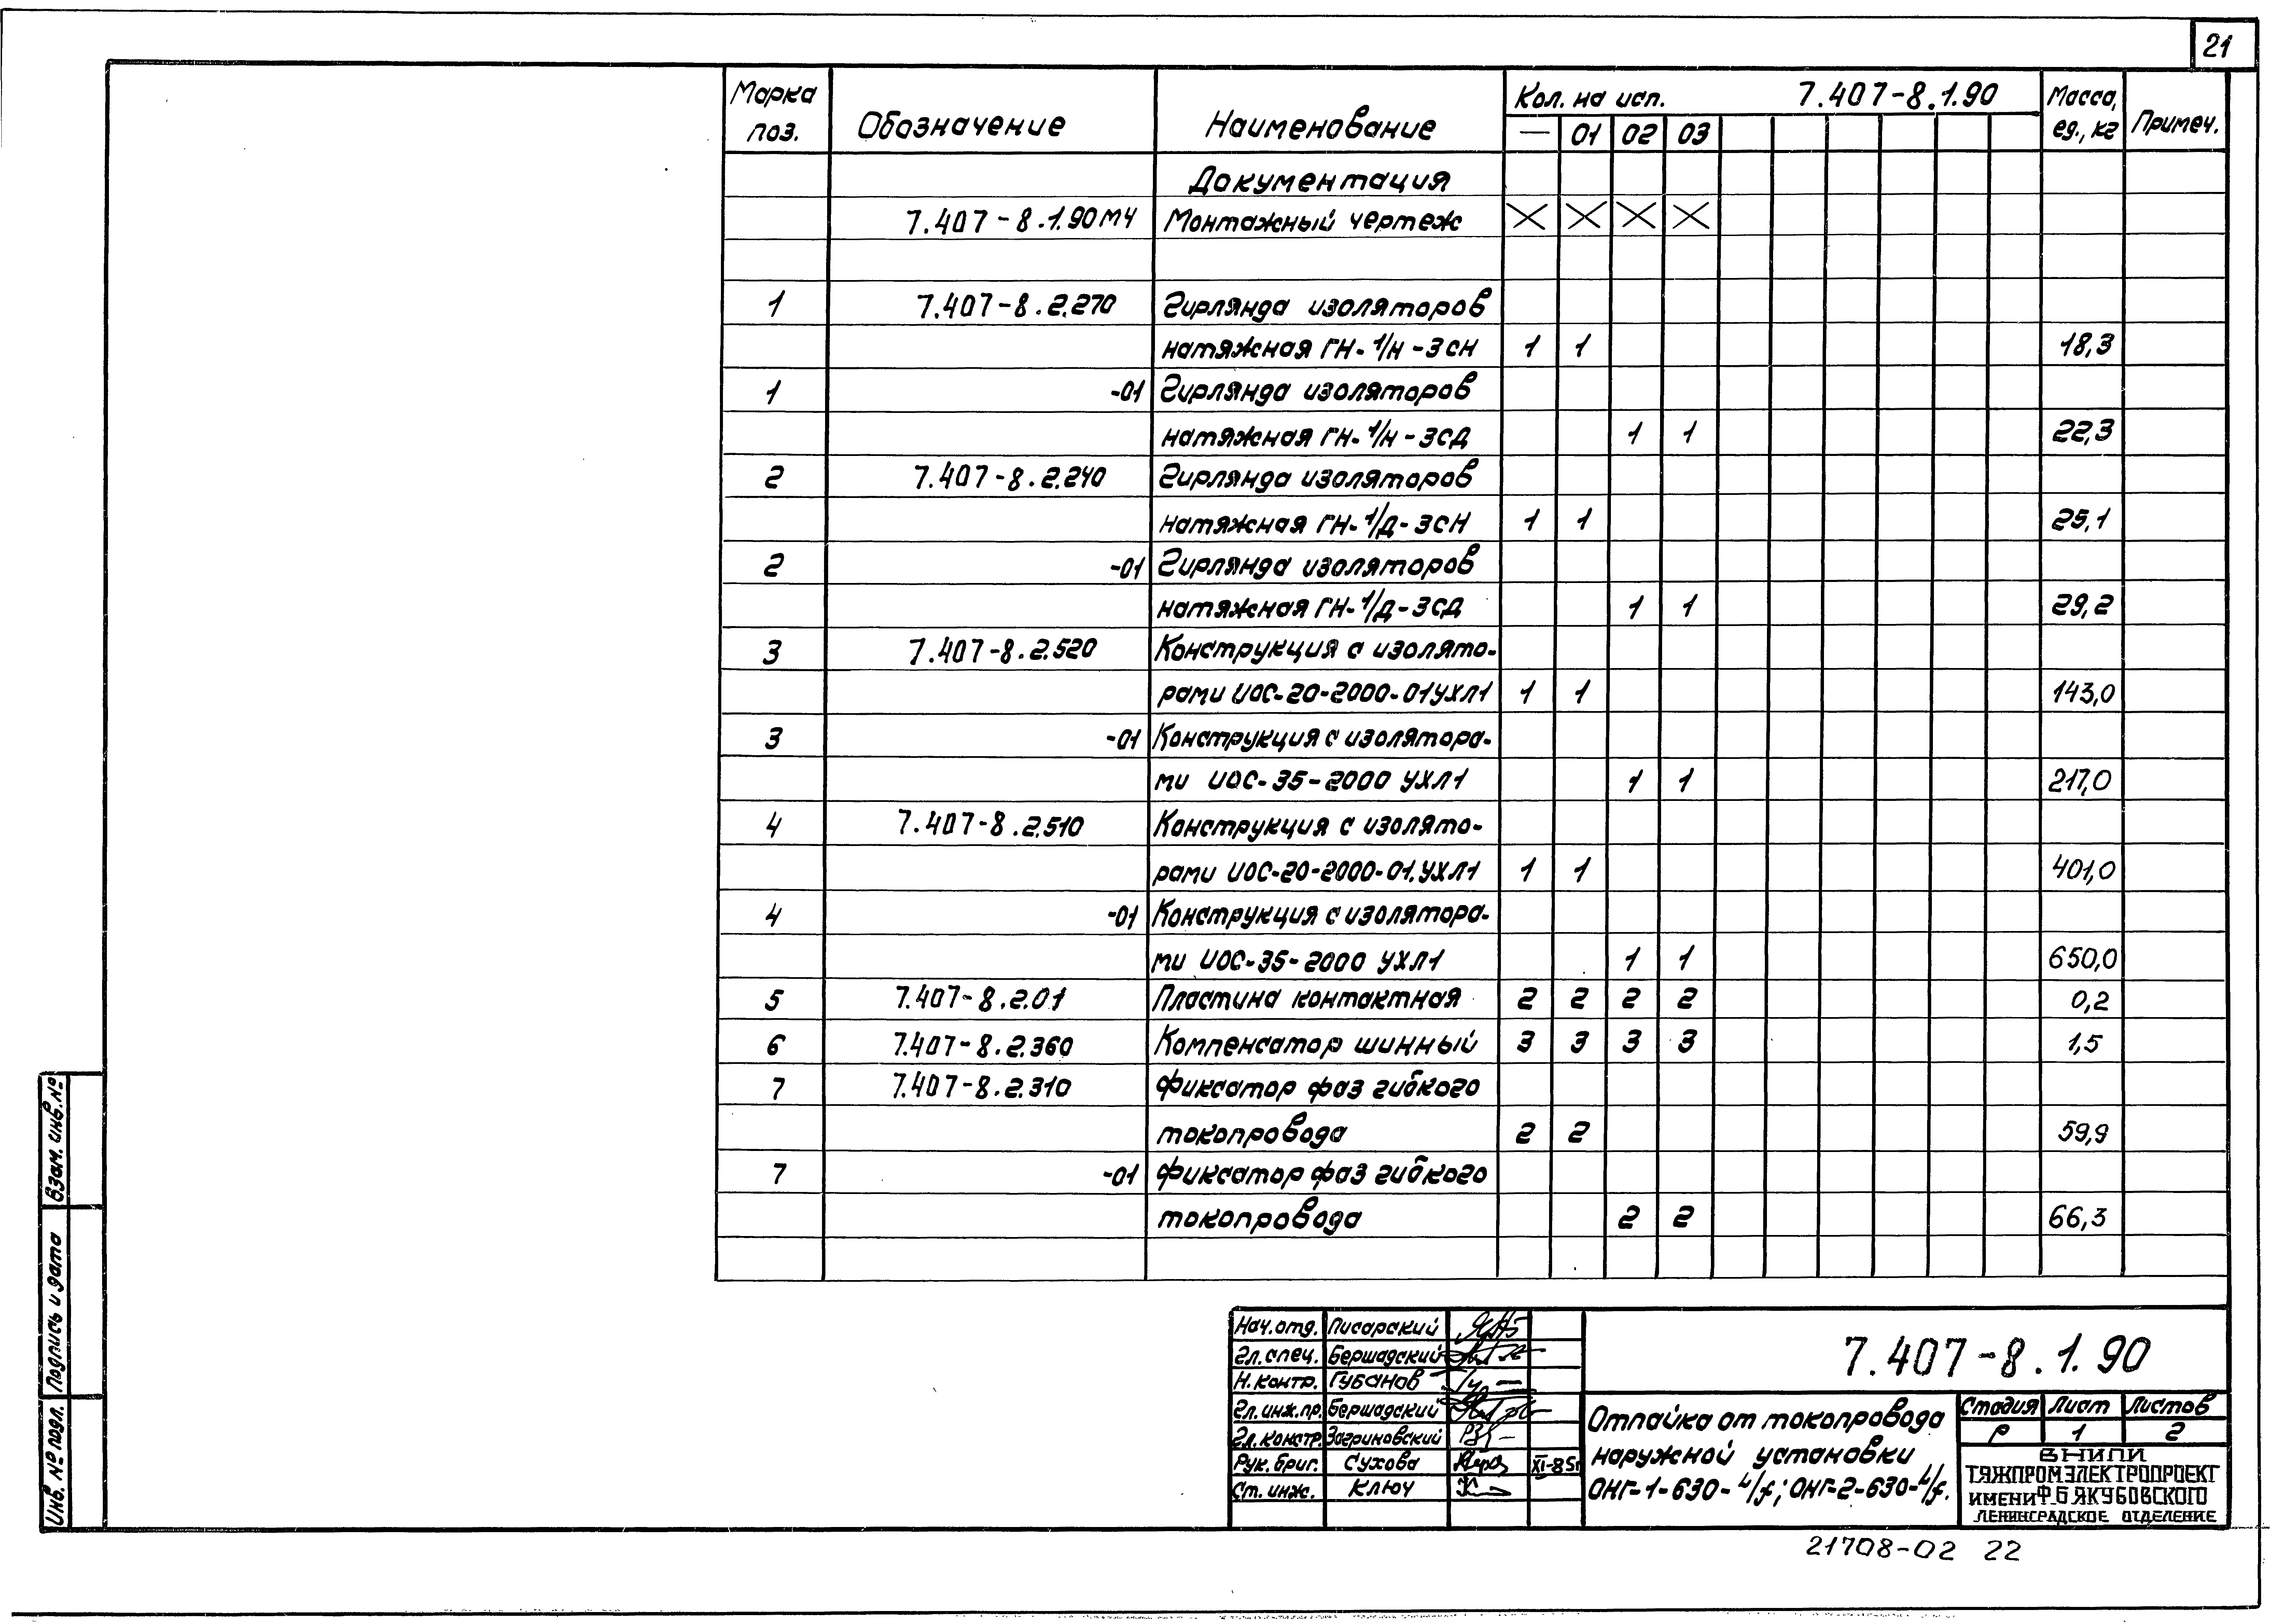 21
Марка поз. Обозначение Наименование Кол. на исп. 7.407-8.1.90 Масса, ед., кг Примеч.
— 01 02 03
Документация
7.407-8.1.90МЧ Монтажный чертеж X X X X
1 7.407-8.2.270 Гирлянда изоляторов
натяжная ГН-1/Н-3СН 1 1 18,3
1 -01 Гирлянда изоляторов
натяжная ГН-1/Н-3СД 1 1 22,3
2 7.407-8.2.240 Гирлянда изоляторов
натяжная ГН-1/Д-3СН 1 1 25,1
2 -01 Гирлянда изоляторов
натяжная ГН-1/Д-3СД 1 1 29,2
3 7.407-8.2.520 Конструкция с изолято-
рами ИОС-20-2000-01УХЛ1 1 1 143,0
3 -01 Конструкция с изолятора-
ми ИОС-35-2000 УХЛ1 1 1 217,0
4 7.407-8.2.510 Конструкция с изолято-
рами ИОС-20-2000-01.УХЛ1 1 1 401,0
4 -01 Конструкция с изолятора-
ми ИОС-35-2000 УХЛ1 1 1 650,0
5 7.407-8.2.01 Пластина контактная 2 2 2 2 0,2
6 7.407-8.2.360 Компенсатор шинный 3 3 3 3 1,5
7 7.407-8.2.310 Фиксатор фаз гибкого
токопровода 2 2 59,9
7 -01 Фиксатор фаз гибкого
токопровода 2 2 66,3
Взам. инв. №
Подпись и дата
Инв. № подл.
Нач. отд. Писарский
Гл. спец. Бершадский
Н. контр. Губанов
Гл. инж. пр. Бершадский
Гл. констр. Загриновский
Рук. бриг. Сухова XI-85г
Ст. инж. Ключ
7.407-8.1.90
Отпайка от токопровода
наружной установки
ОНГ-1-630-И/f; ОНГ-2-630-И/f.
Стадия Лист Листов
Р 1 2
ВНИПИ
ТЯЖПРОМЭЛЕКТРОПРОЕКТ
ИМЕНИ Ф.Б ЯКУБОВСКОГО
ЛЕНИНГРАДСКОЕ ОТДЕЛЕНИЕ
21708-02 22